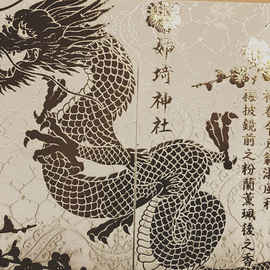 梅披鏡前之粉蘭薫珮後之香
姉埼神社